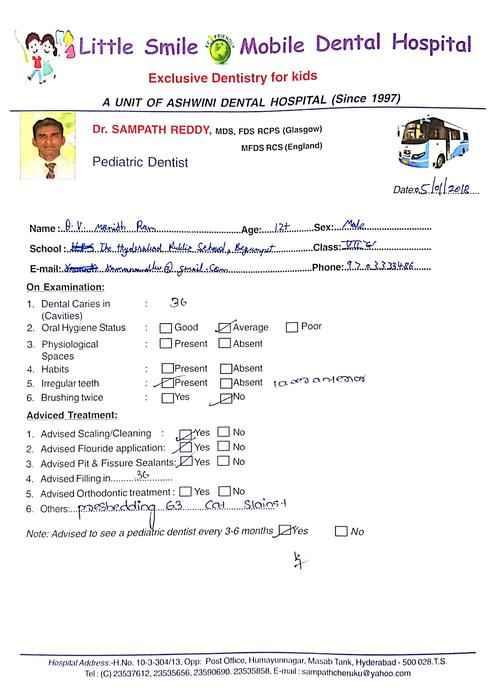 Little Smile Mobile Dental Hospital
ECO FRIENDLY
Exclusive Dentistry for kids
A UNIT OF ASHWINI DENTAL HOSPITAL (Since 1997)
Dr. SAMPATH REDDY, MDS, FDS RCPS (Glasgow)
MFDS RCS (England)
Pediatric Dentist
Date: 5/01/2018
Name: B.V. Manith Ram Age: 12+ Sex: Male
School: The Hyderabad Public School, Begumpet Class:
E-mail: @gmail.com Phone: 9703333486
On Examination:
1. Dental Caries in : 36
(Cavities)
2. Oral Hygiene Status : Good Average Poor
3. Physiological : Present Absent
Spaces
4. Habits : Present Absent
5. Irregular teeth : Present Absent
6. Brushing twice : Yes No
Adviced Treatment:
1. Advised Scaling/Cleaning : Yes No
2. Advised Flouride application: Yes No
3. Advised Pit & Fissure Sealants: Yes No
4. Advised Filling in 36
5. Advised Orthodontic treatment : Yes No
6. Others: preshedding 63
Note: Advised to see a pediatric dentist every 3-6 months Yes No
Hospital Address:-H.No. 10-3-304/13, Opp: Post Office, Humayunnagar, Masab Tank, Hyderabad - 500 028.T.S.
Tel : (C) 23537612, 23535656, 23590690, 23535858. E-mail : sampathcheruku@yahoo.com